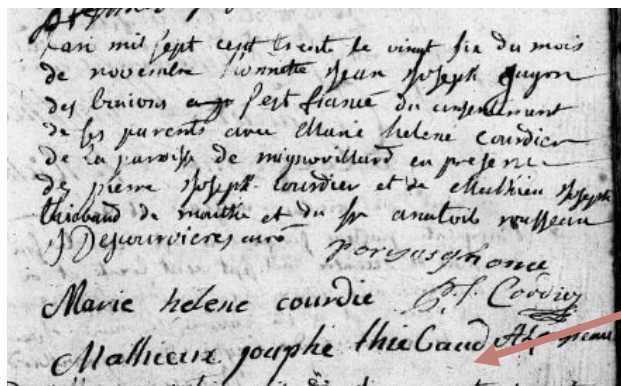 L'an mil sept cent trente le vingt six du mois
de novembre honnette Jean Joseph guyon
des bruions s'est fiancé du consentement
de ses parents avec Marie helene courdier
de la paroisse de mignovillard en presence
de pierre Joseph courdier et de Mathieu Joseph
thiebaud de mouthe et du Sr anatoile rousseau
J Depourvieres curé
Marie helene courdie P. J. Cordier
Mathieux jouphe thiebaud